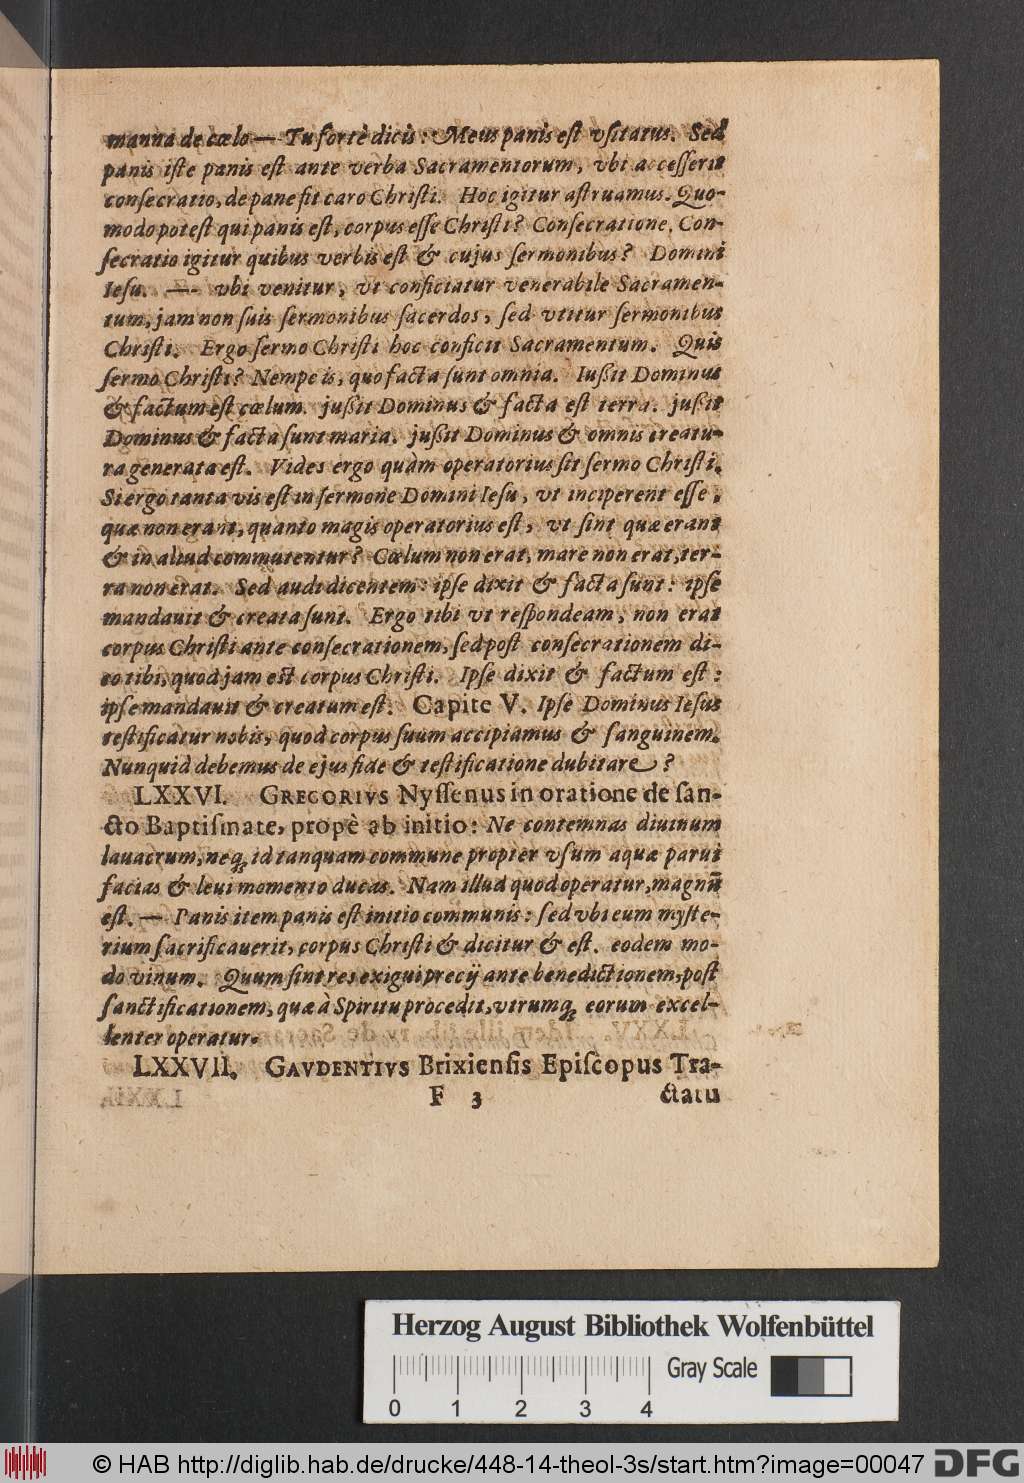 manna de cœlo — Tu fortè dicis: Meus panis est vsitatus. Sed
panis iste panis est ante verba Sacramentorum, vbi accesserit
consecratio, de pane fit caro Christi. Hoc igitur astruamus. Quo-
modo potest qui panis est, corpus esse Christi? Consecratione. Con-
secratio igitur quibus verbis est & cujus sermonibus? Domini
Iesu. —- vbi venitur, vt conficiatur venerabile Sacramen-
tum, jam non suis sermonibus sacerdos, sed vtitur sermonibus
Christi. Ergo sermo Christi hoc conficit Sacramentum. Quis
sermo Christi? Nempe is, quo facta sunt omnia. Iußit Dominus
& factum est cœlum. jußit Dominus & facta est terra. jußit
Dominus & facta sunt maria. jußit Dominus & omnis creatu-
ra generata est. Vides ergo quàm operatorius sit sermo Christi.
Si ergo tanta vis est in sermone Domini Iesu, vt inciperent esse,
quæ non erant, quanto magis operatorius est, vt sint quæ erant
& in aliud commutentur? Cœlum non erat, mare non erat, ter-
ra non erat. Sed audi dicentem: ipse dixit & facta sunt: ipse
mandauit & creata sunt. Ergo tibi vt respondeam, non erat
corpus Christi ante consecrationem, sed post consecrationem di-
co tibi, quod jam est corpus Christi. Ipse dixit & factum est:
ipse mandauit & creatum est. Capite V. Ipse Dominus Iesus
testificatur nobis, quod corpus suum accipiamus & sanguinem.
Nunquid debemus de ejus fide & testificatione dubitare?
LXXVI. GREGORIVS Nyssenus in oratione de san-
cto Baptismate, propè ab initio: Ne contemnas diuinum
lauacrum, neq; id tanquam commune propter vsum aquæ parui
facias & leui momento ducas. Nam illud quod operatur, magnū
est. — Panis item panis est initio communis: sed vbi eum myste-
rium sacrificauerit, corpus Christi & dicitur & est. eodem mo-
do vinum. Quum sint res exigui precij ante benedictionem, post
sanctificationem, quæ à Spiritu procedit, vtrumq; eorum excel-
lenter operatur.
LXXVII. GAVDENTIVS Brixiensis Episcopus Tra-
F 3 ctatu
Herzog August Bibliothek Wolfenbüttel
Gray Scale
0 1 2 3 4
© HAB http://diglib.hab.de/drucke/448-14-theol-3s/start.htm?image=00047
DFG